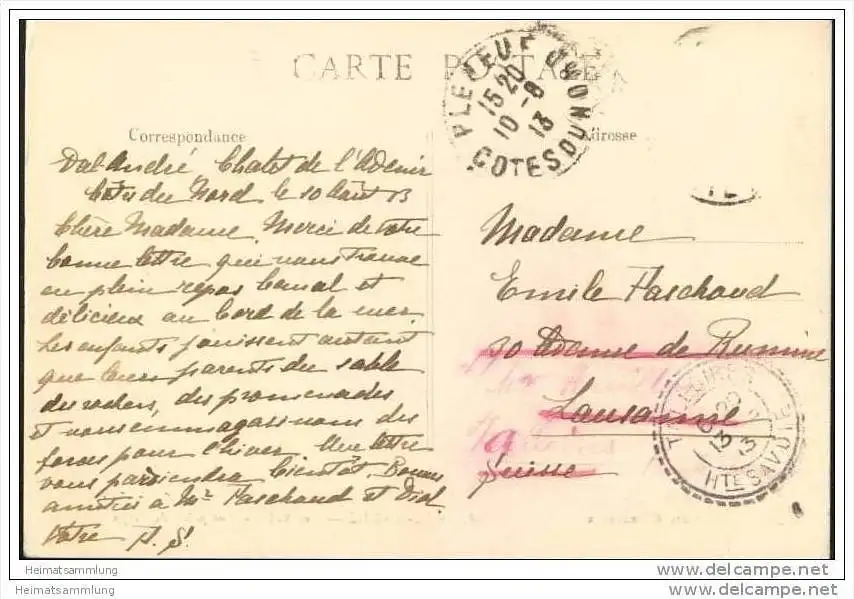 CARTE POSTALE
PLENEUF
15 20
10 - 8
13
COTES DU NORD
Correspondance
Adresse
Val-André Chalet de l'Avenir
Côtes du Nord le 10 Août 13
Chère Madame, Merci de votre
bonne lettre qui nous trouve
en plein repos et
délicieux au bord de la mer.
Les enfants jouissent autant
que leurs parents du sable
des rochers, des promenades
et nous emmagasinons des
forces pour l'hiver. Une lettre
vous parviendra bientôt. Bonnes
amitiés à Mr Paschoud et
Votre J. S.
Madame
Emile Paschoud
30 Avenue de Rumine
Lausanne
Suisse
à
TALLOIRES
20
13
HTE SAVOIE
Heimatsammlung
Heimatsammlung
delcampe.net
delcampe.net